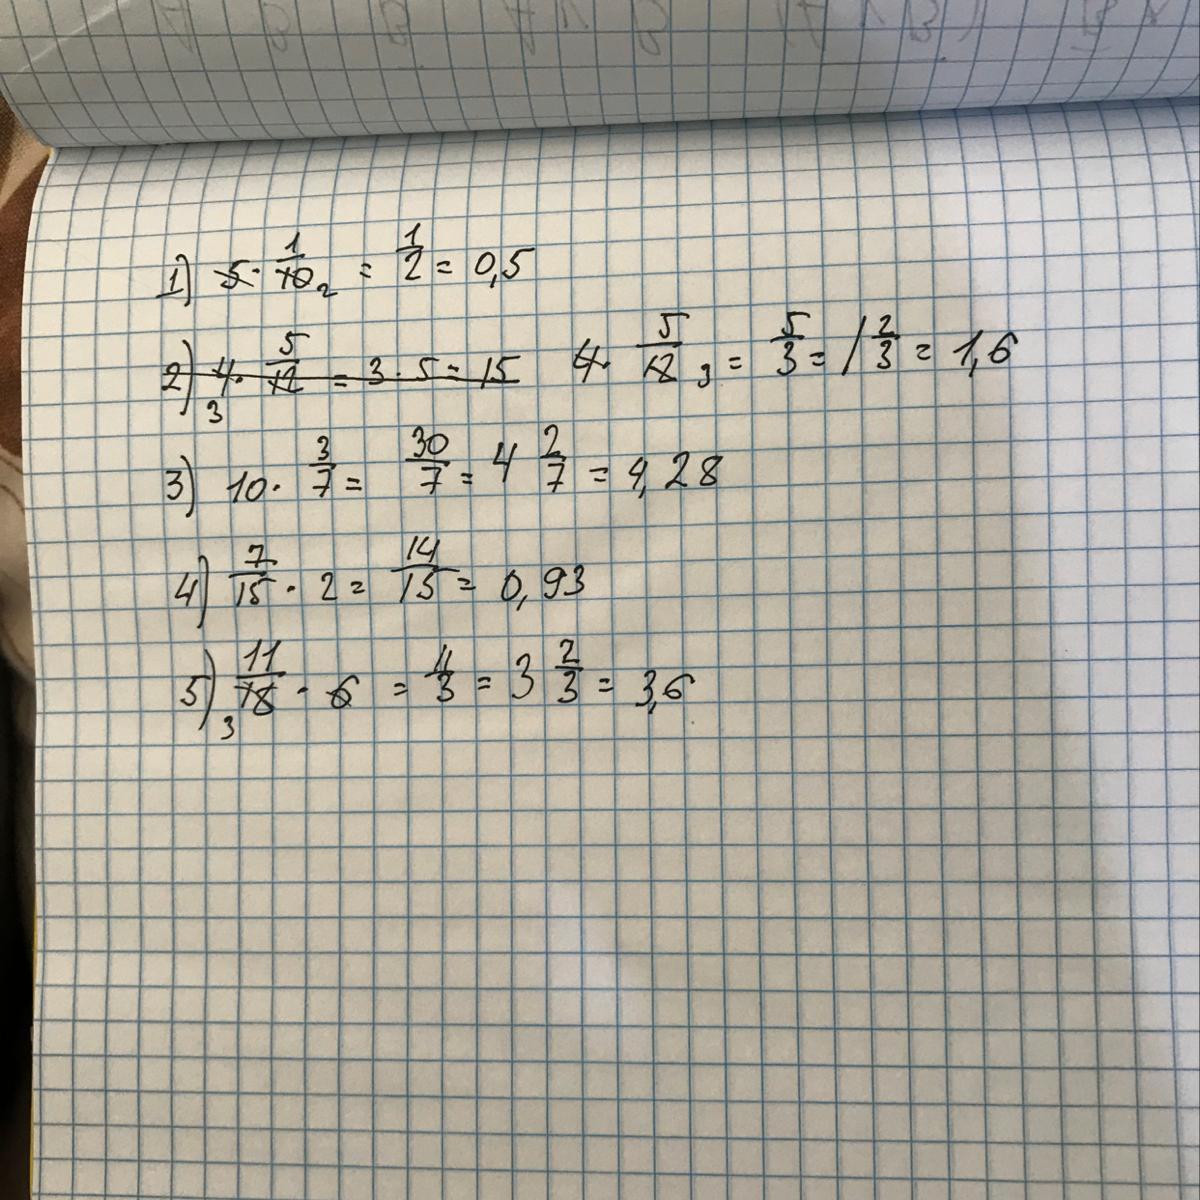 1) 5 · 1/10 2 = 1/2 = 0,5
2) 4 · 5/12 = 3 · 5 = 15 4 · 5/12 3 = 5/3 = 1 2/3 = 1,6
3
3) 10 · 3/7 = 30/7 = 4 2/7 = 4,28
4) 7/15 · 2 = 14/15 = 0,93
5) 3 11/18 · 6 = 11/3 = 3 2/3 = 3,6